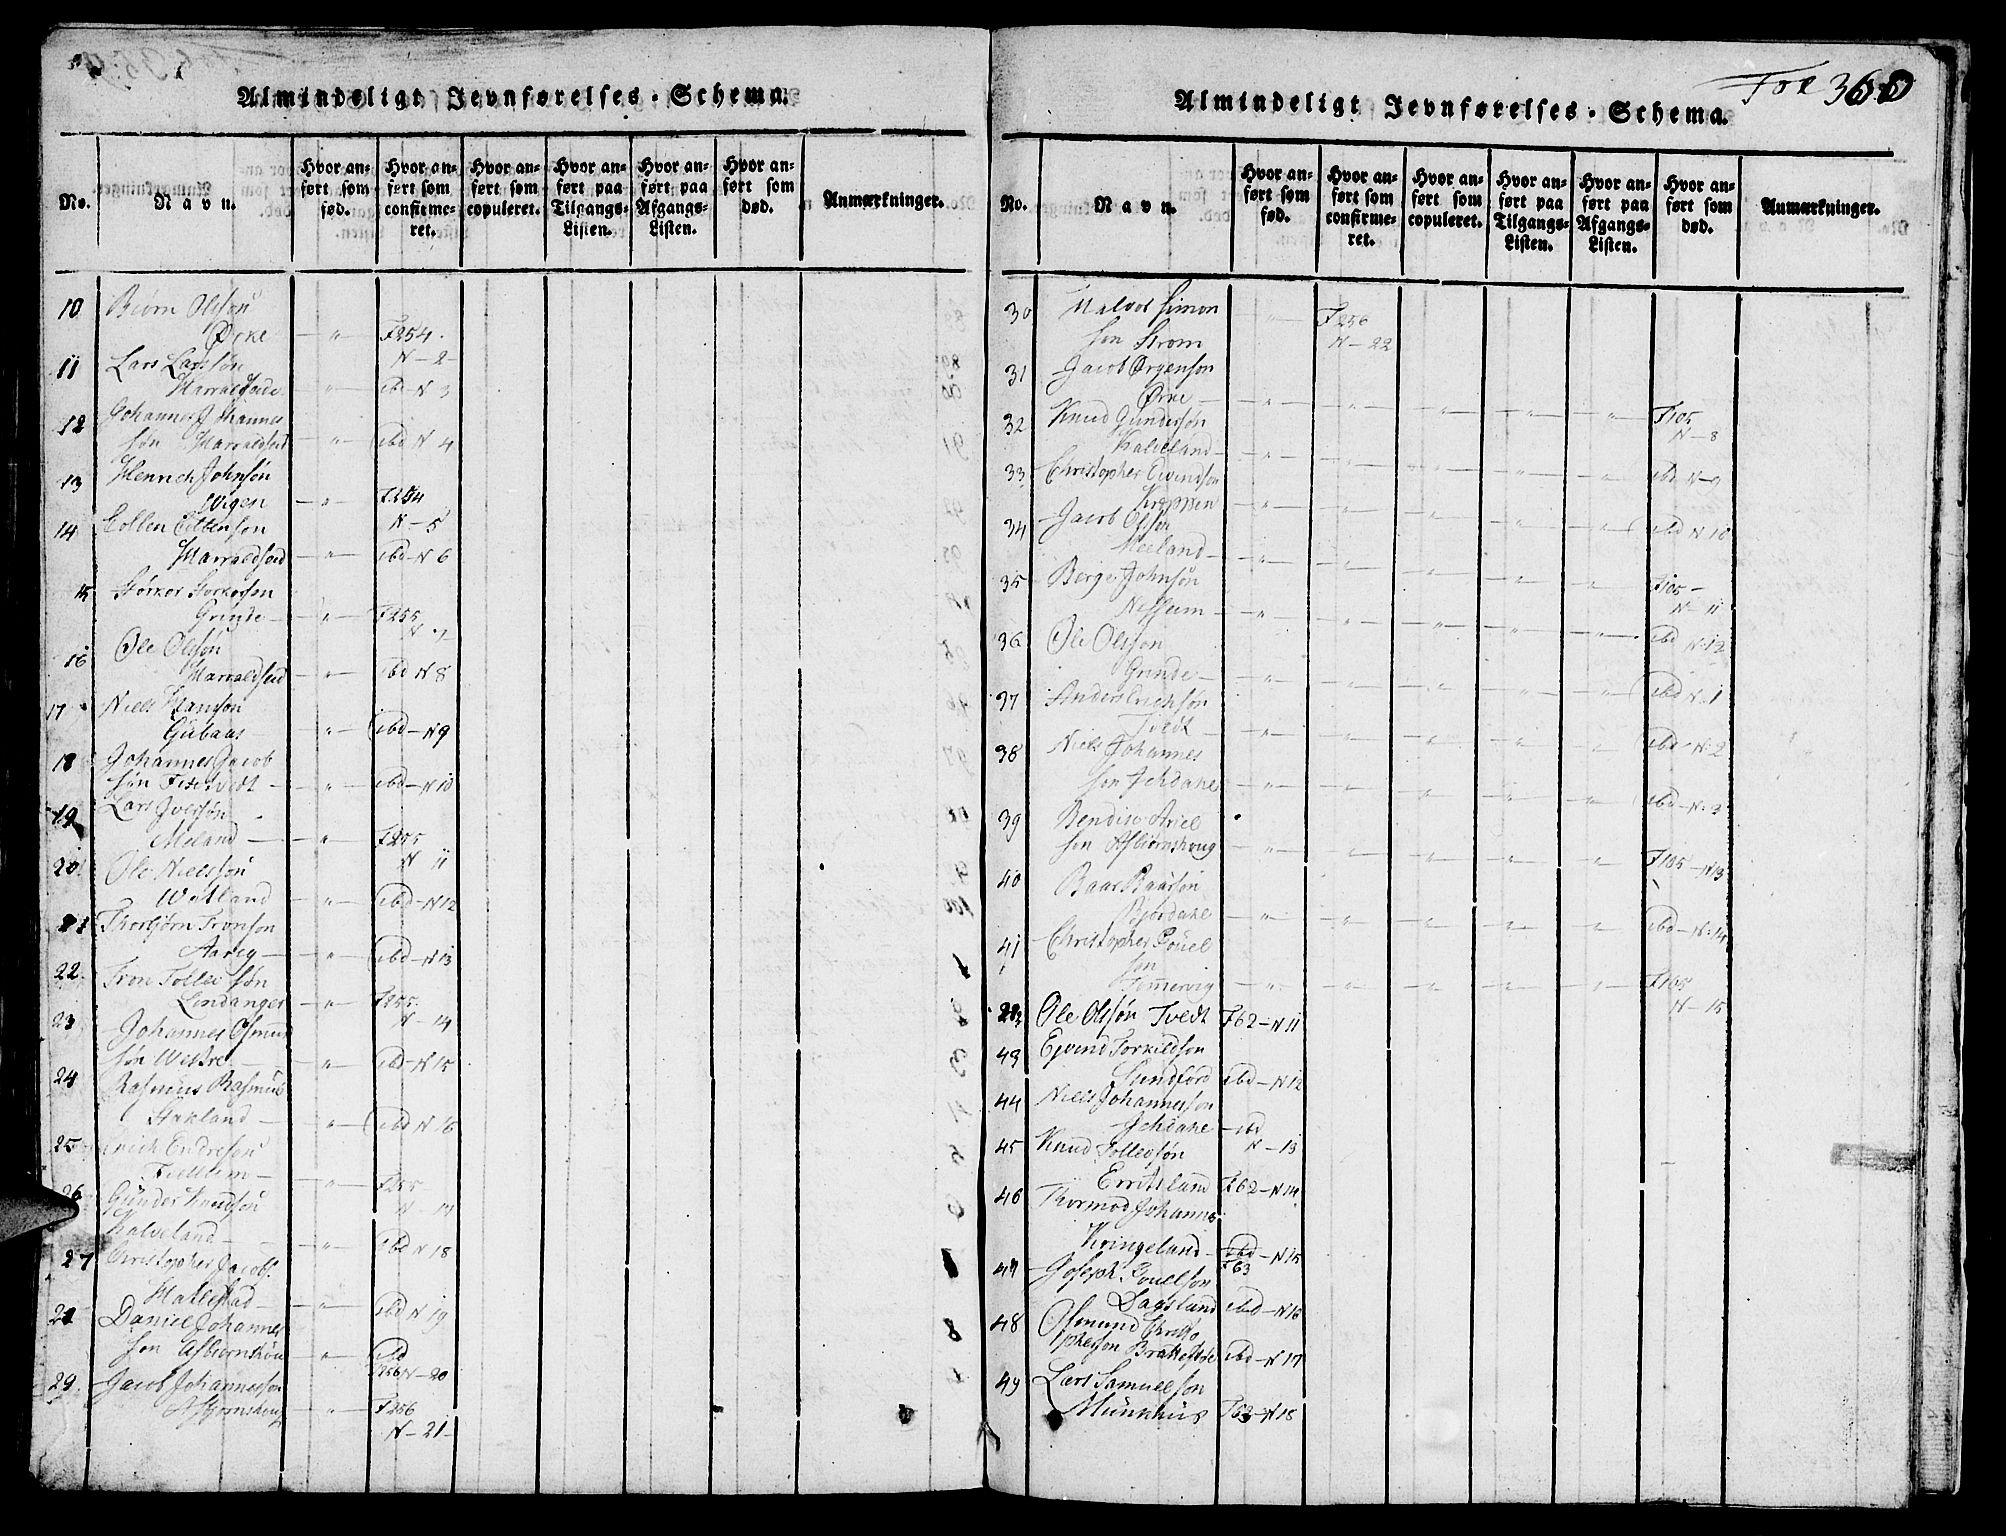 Almindeligt Jevnførelses-Schema.
No.
Navn.
Hvor anført som fød.
Hvor anført som confirmeret.
Hvor anført som copuleret.
Hvor anført paa Tilgangs-Listen.
Hvor anført paa Afgangs-Listen.
Hvor anført som død.
Anmærkninger.
10 Biørn Olssøn
Ørke — " — F254.
N-2-
11 Lars Larssøn
Harraldseid — " — ibd N 3
12 Johannes Johannes
søn Harraldseid — " — ibd N 4
13 Henrich Johnsøn
Wigen — " — F254
N-5
14
Harraldseid — " — ibd-N 6
15 Størker Størkersen
Grinde — " — F255
N 7
16 Ole Olssøn
Harraldseid — " — ibd N 8
17 Niels Hansøn
Gubaas — " — ibd-N9
18 Johannes Jacob
søn — " — ibd-N10
19 Lars Iverssøn
Meland — " — F255
N 11
20 Ole Nielssøn
Watland — " — ibd-N12
21 Thorbjørn Tronson
— " — ibd-N13
22 Tron Tollev søn
Lindanger — " — F255
N-14
23 Johannes Osmun
søn Westre — " — ibd-N15
24 Rasmus Rasmus
Stakland — " — ibd N 16
25 Endresøn
— " — F255
N 17
26 Gunder Knudsøn
Kalveland — " — ibd N 18
27 Christopher Jacobs.
Hallestad — " — ibd N 19
28 Daniel Johannes
søn Asbiornshøu — " — ibd
F256 N-20
29 Jacob Johannessøn
Asbjornshoug — " — F256
N-21-
Fol 360
Almindeligt Jevnførelses-Schema.
No.
Navn.
Hvor anført som fød.
Hvor anført som confirmeret.
Hvor anført som copuleret.
Hvor anført paa Tilgangs-Listen.
Hvor anført paa Afgangs-Listen.
Hvor anført som død.
Anmærkninger.
30 Halvor Simon
søn Strøm — " — F256
N-22
31 Jacob Ørgenson
Ørke — " — " — " — " — " — F105
N-8
32 Knud Gundersøn
Kalveland — " — " — " — " — " — ibd N-9
33 Christopher Eivindsøn
Kroppen — " — " — " — " — " — ibd N 10
34 Jacob Olssøn
Meeland — " — " — " — " — " — F105-
N-11
35 Berge Johnsøn
Nessum — " — " — " — " — " — ibd N.12
36 Ole Olssøn
Grinde — " — " — " — " — " — ibd N.1
37 Anders Erichsøn
Tvedt — " — " — " — " — " — ibd-N.2
38 Niels Johannes
søn Jchdahe — " — " — " — " — " — ibd-N.3
39 Ariel
søn Asbiornshoug — " — " — " — " — " — F105-N13
40 Baar Baarsøn
— " — " — " — " — " — ibd-N.14
41 Christopher Pouel
søn
Tømmervig — " — " — " — " — " — F105
N-15
42 Ole Olssøn Tvedt F62-N11
43 Ejvind Torkildson
Sundførd ibd-N12
44 Niels Johannesson
Jchdahe -ibd
N-13
45 Knud Tollevsøn
Erritsland F62-N14
46 Thormod Johannes
Kringeland ibd-N15
F63
47 Joseph Pouelson
Dagsland ibd-N16
48 Osmund Christo
phersøn ibd-N17
49 Lars Samuelsøn
Munkhus F63-N18